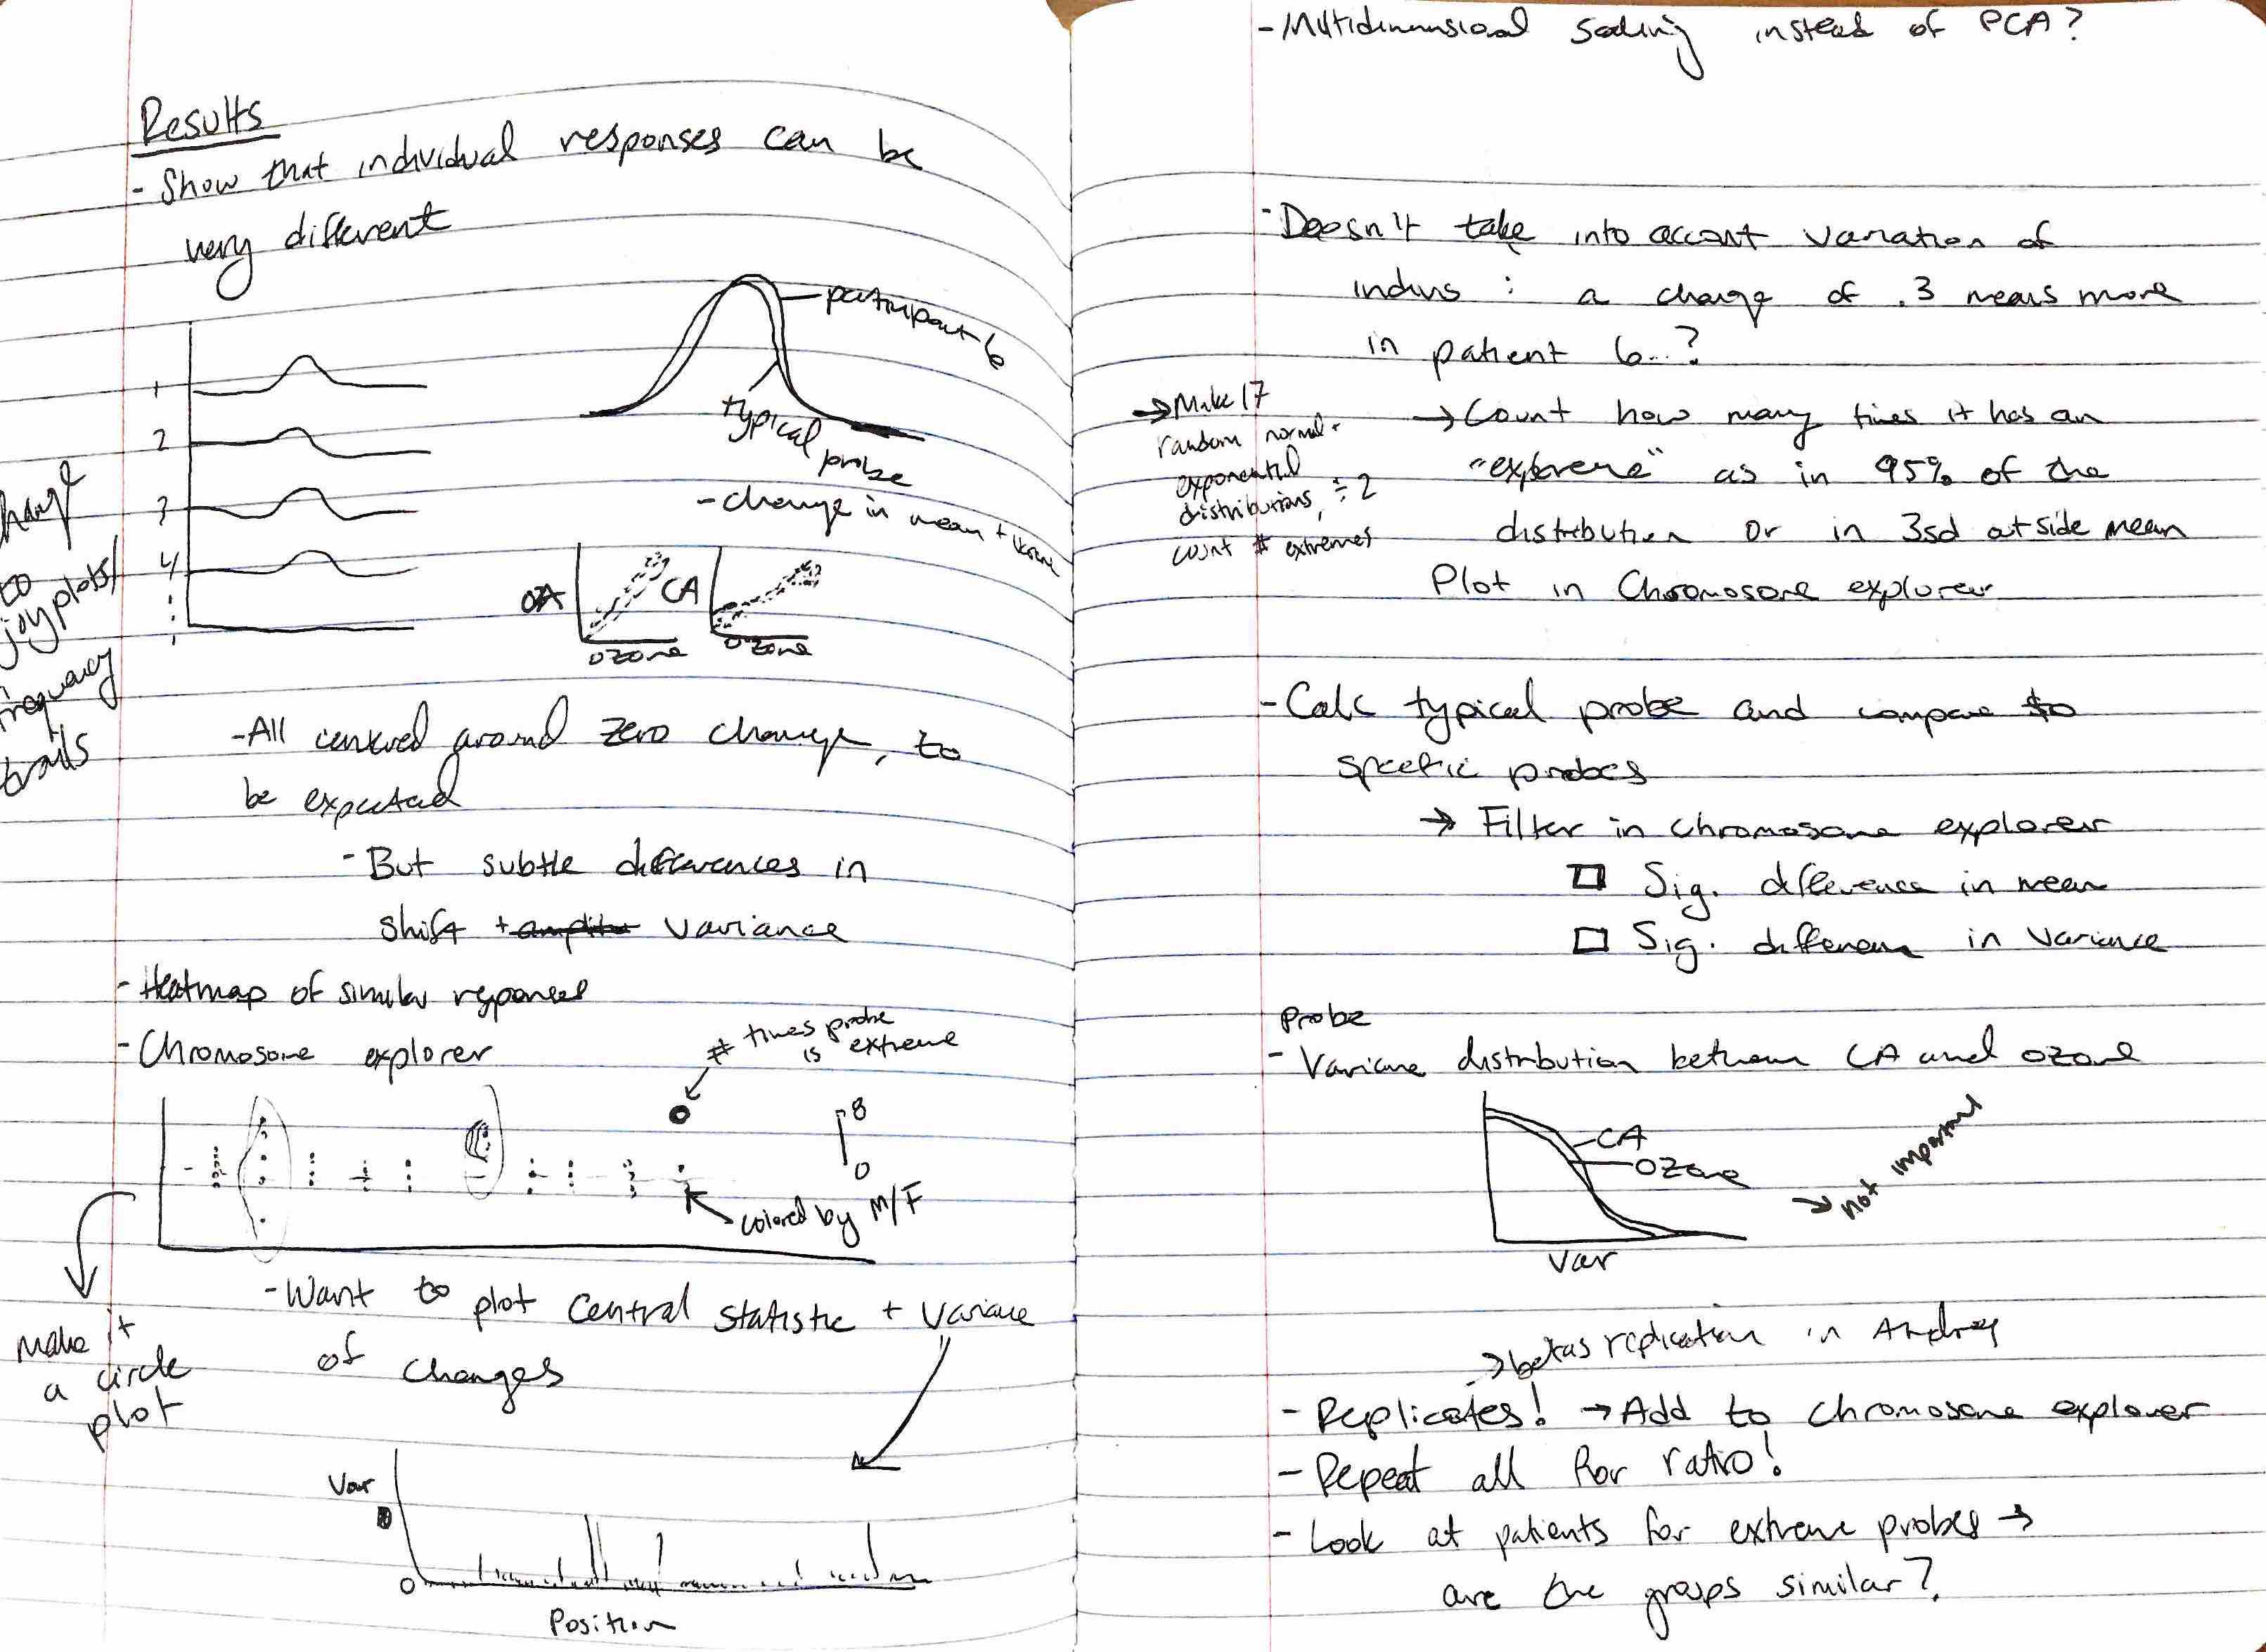 Results
- Show that individual responses can be
very different
participant 6
typical
probe
- change in mean +
1
2
3
4
to
joyplots/
frequency
trails
OA
ozone
CA
ozone
- All centered around zero change, to
be expected
- But subtle differences in
shift + variance
- Heatmap of similar reponses
- Chromosome explorer
# times probe
is extreme
8
0
colored by M/F
Make it
a circle
plot
- Want to plot central statistic + variance
of changes
Var
0
Position
- Multidimensional Scaling instead of PCA?
- Doesn't take into account variation of
indivs : a change of .3 means more
in patient 6...?
→ Make 17
random normal +
exponential
distributions, ÷ 2
count # extremes
→ Count how many times it has an
"extreme" as in 95% of the
distribution or in 3sd outside mean
Plot in Chromosome explorer
- Calc typical probe and compare to
specific probes
→ Filter in chromosome explorer
□ Sig. difference in mean
□ Sig. difference in variance
Probe
- Variance distribution between CA and ozone
CA
ozone
Var
→ not important
→ betas replication in
- Replicates! → Add to chromosome explorer
- Repeat all for ratio!
- Look at patients for extreme probes →
are the groups similar?